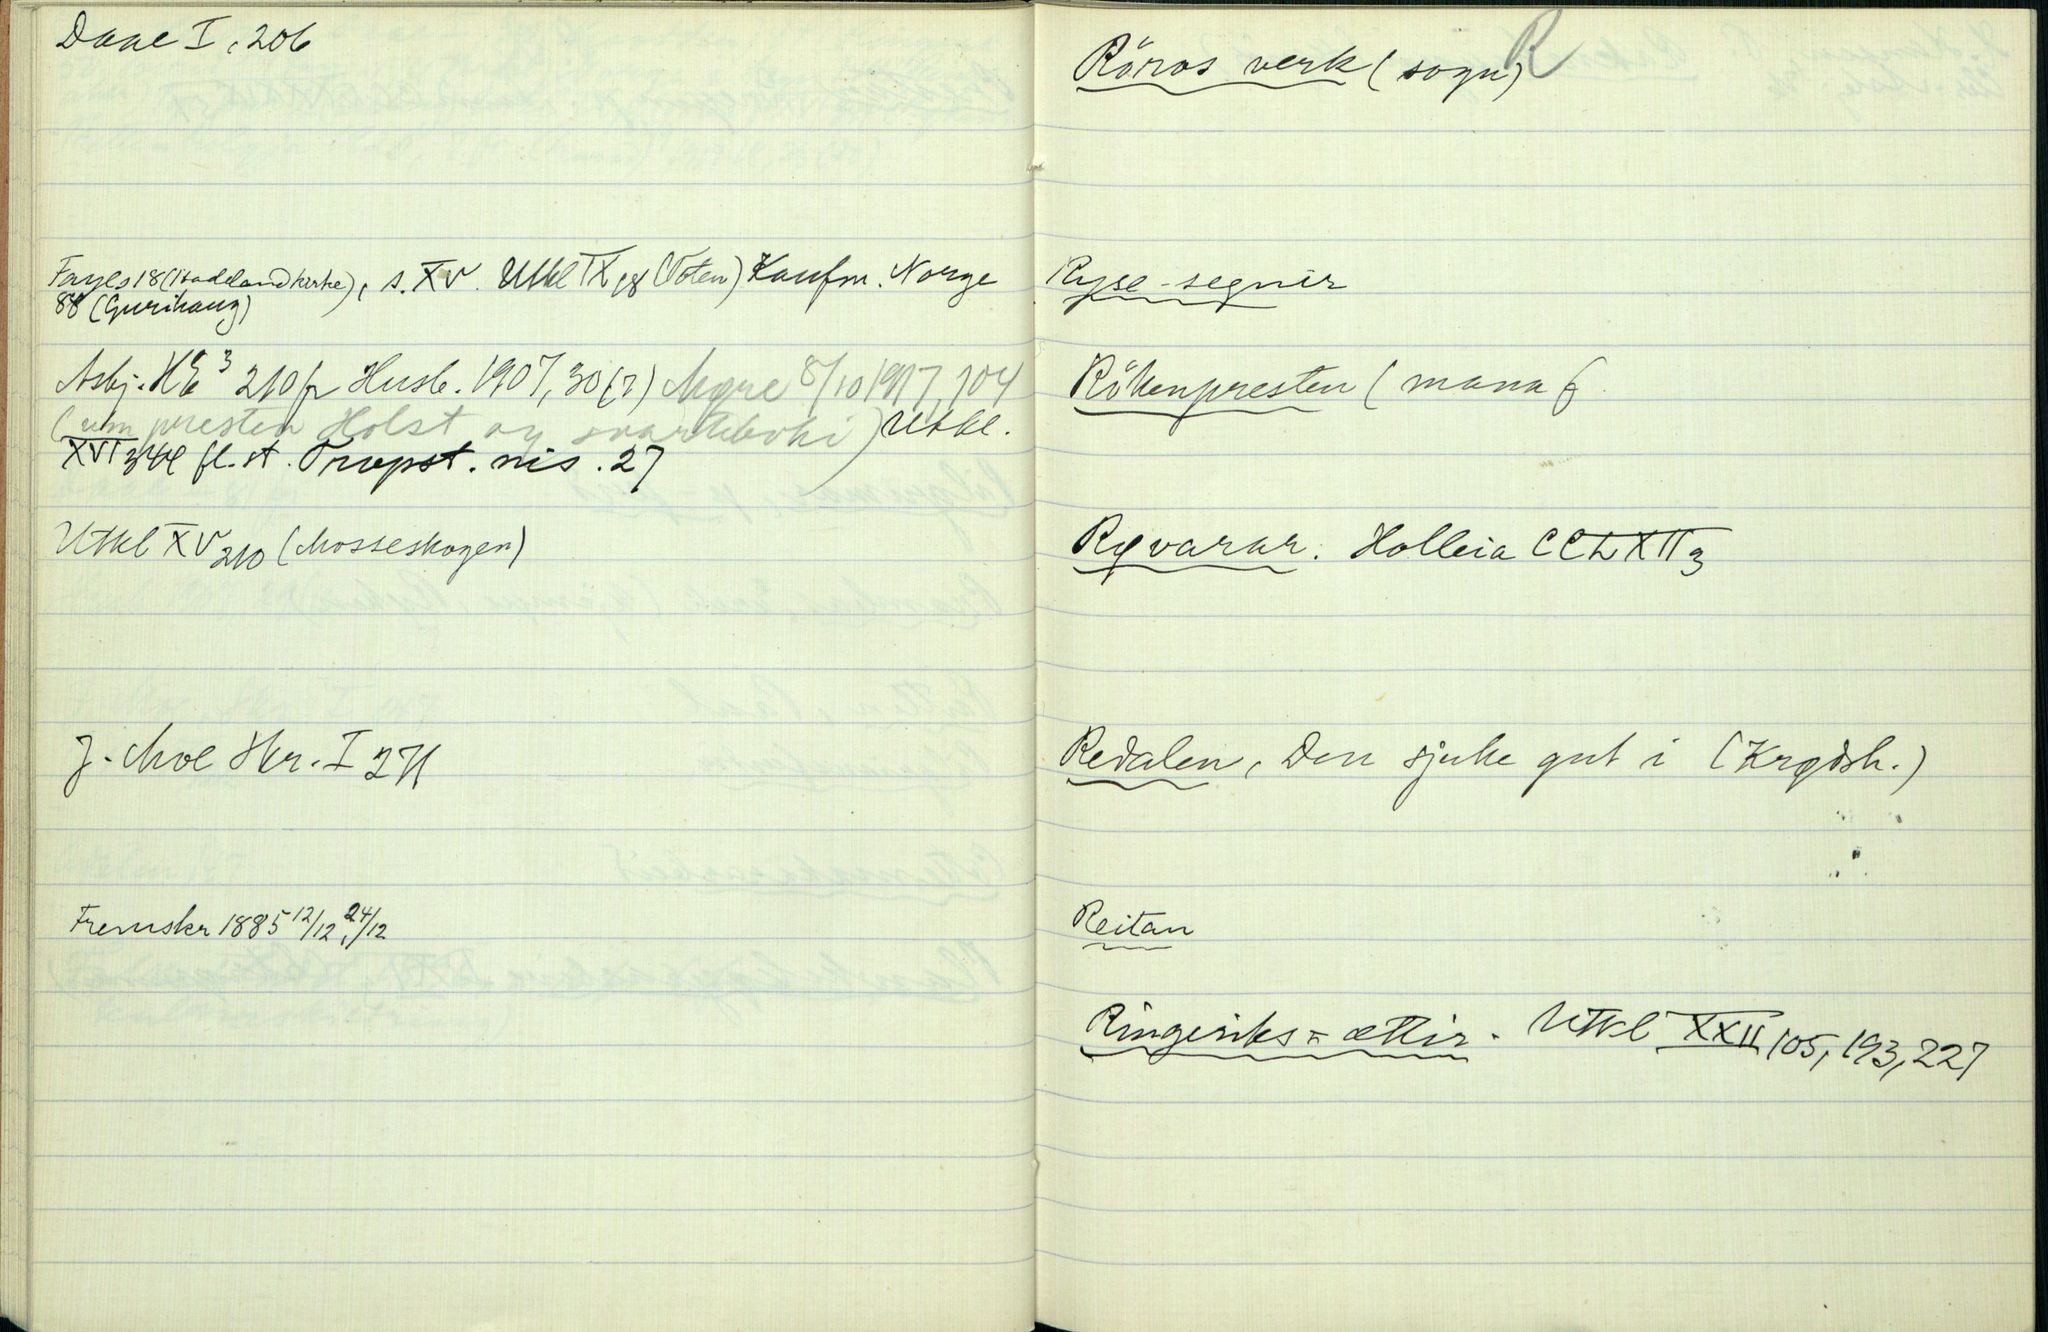 Daae I, 206
Fayes 18 (Hadeland kirke), s. XV. Utkl IX, 18 (Toten) Kaufm. Norge
88 (Gurihaug)
Asbj. HE³ 210 fr Husb. 1907, 30 (?) 8/10 1917, 104
(um presten Holst og svarteboki) Utkl.
XVI 344 fl. st. Tropst. nis. 27
Utkl XV 210 (Mosseskogen)
J. Moe Skr. I 271
Fremskr 1885 12/12, 24/12
R
Röros verk (sogn)
Ryse-segnir
Rökenpresten (mana
Ryvarar. Holleia CCLXII 3
Redalen, Den sjuke gut i (Krødsh.)
Reitan
Ringeriks=ættir. Utkl XXII 105, 193, 227